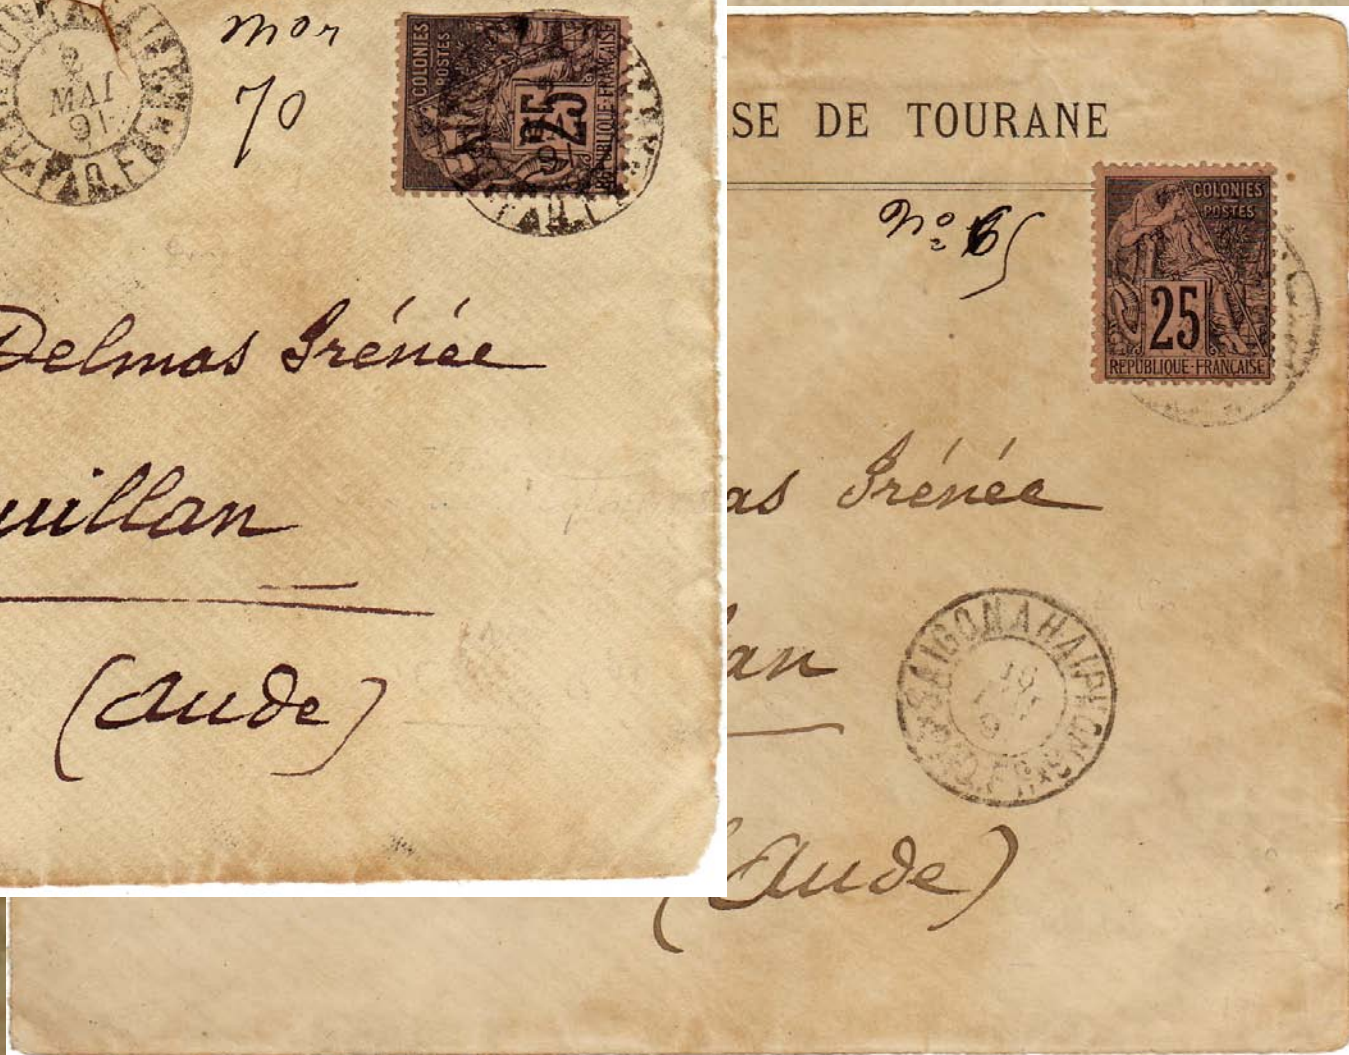 2
MAI
91
nor
70
COLONIES
POSTES
25
REPUBLIQUE-FRANÇAISE
Delmas Irénée
uillan
(Aude)
SE DE TOURANE
No 65
COLONIES
POSTES
25
REPUBLIQUE-FRANÇAISE
as Irénée
an
SAIGON A HAIPHONG
(Aude)